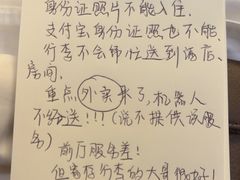 身份证照片不能入住.
支付宝身份证照也不能.
行李不会帮忙送到酒店.
房间.
重点外卖来了,机器人
不给送!!!(说不提供该服
务)
前厅服务差!
但寄存行李的大哥很好!